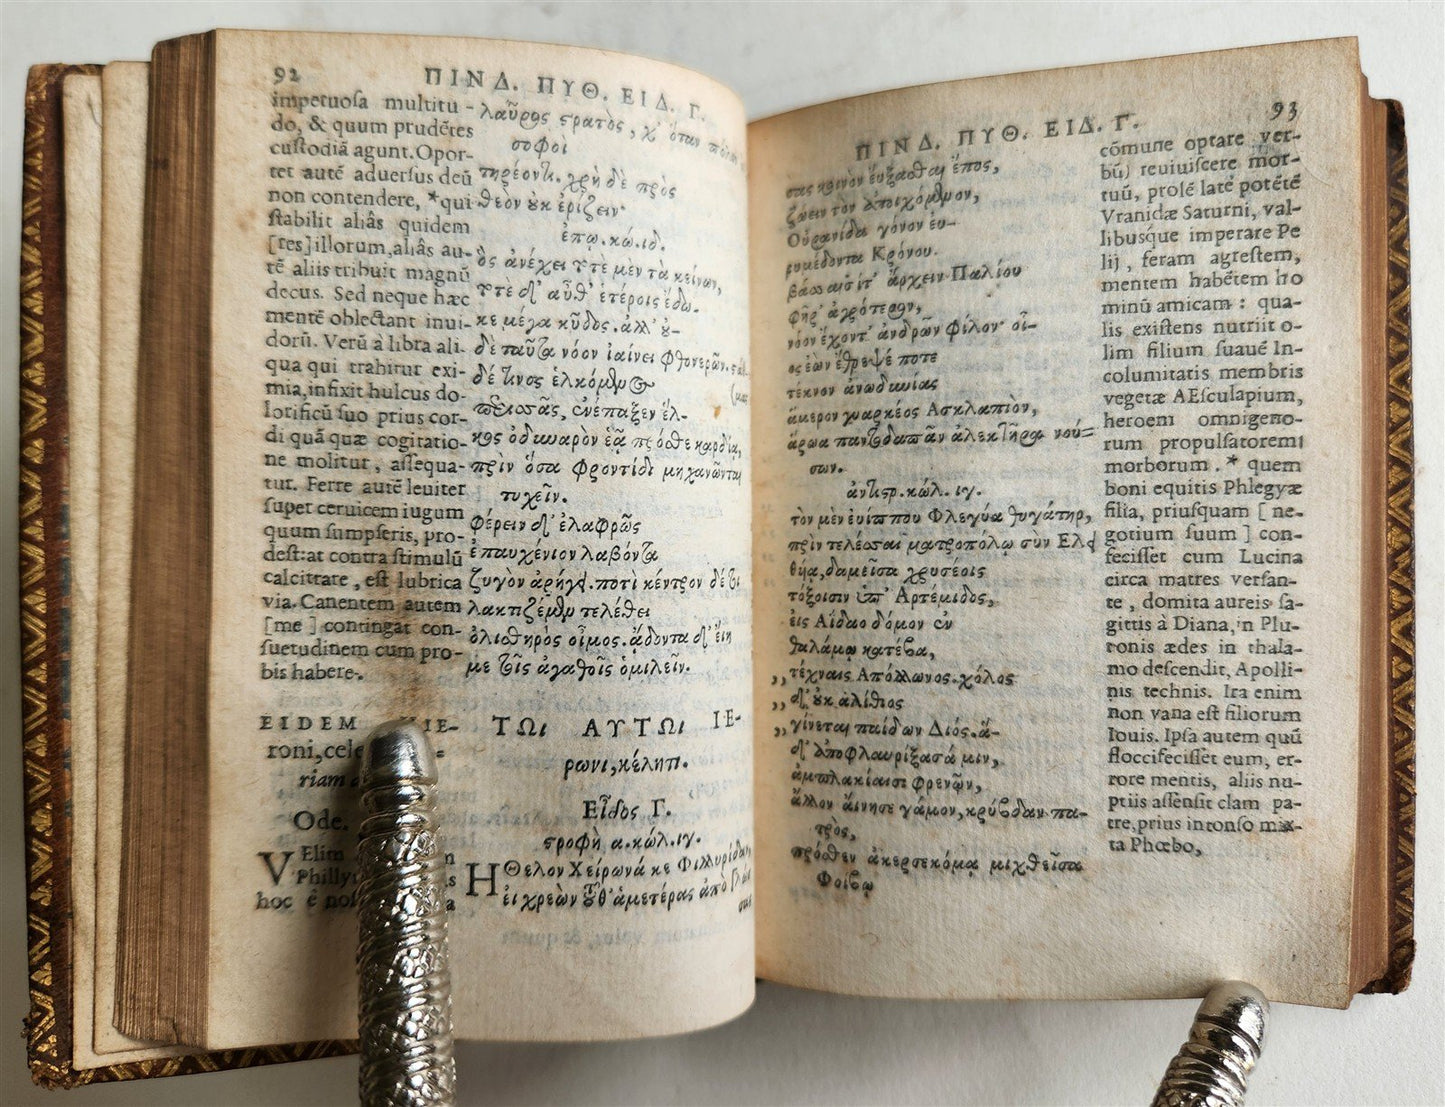 92
ΠΙΝΔ. ΠΥΘ. ΕΙΔ. Γ.
impetuosa multitu-
do, & quum prudẽtes
custodiã agunt. Opor-
tet autẽ aduersus deũ
non contendere, *qui
stabilit aliâs quidem
[res] illorum, aliâs au-
tẽ aliis tribuit magnũ
decus. Sed neque hæc
mentẽ oblectant inui-
dorũ. Verũ à libra ali-
qua qui trahitur exi-
mia, infixit hulcus do-
lorificũ suo prius cor-
di quã quæ cogitatio-
ne molitur, assequa-
tur. Ferre autẽ leuiter
super ceruicem iugum
quum sumpseris, pro-
dest: at contra stimulũ
calcitrare, est lubrica
via. Canentem autem
[me] contingat con-
suetudinem cum pro-
bis habere.
EIDEM HIE-
roni,
riam
Ode.
VElim
hoc ẽ
λαῦρος στρατὸς, χ' ὅταν
σοφοὶ
τηρέοντι. χρὴ δὲ πρὸς
θεὸν οὐκ ἐρίζειν·
ἐπῳ. κώ. ιδ.
ὃς ἀνέχει ποτὲ μὲν τὰ κείνων,
ποτὲ δ' αὖθ' ἑτέροις ἔδω-
κε μέγα κῦδος. ἀλλ' οὐ-
δὲ ταῦτα νόον ἰαίνει φθονερῶν.
δέ τινος ἑλκόμενοι
περισσᾶς, ἐνέπαξεν ἕλ-
κος ὀδυναρὸν ἑᾷ πρόσθε καρδίᾳ,
πρὶν ὅσα φροντίδι μηχανῶνται
τυχεῖν.
φέρειν δ' ἐλαφρῶς
ἐπαυχένιον λαβόντα
ζυγὸν ἀρήγει. ποτὶ κέντρον δέ τοι
λακτιζέμεν τελέθει
ὀλισθηρὸς οἶμος. ἁδόντα δ' εἴη
με τοῖς ἀγαθοῖς ὁμιλεῖν.
ΤΩι ΑΥΤΩι ΙΕ-
ρωνι, κέλητι.
Εἶδος Γ.
στροφὴ α. κώλ. ιγ.
ΗΘελον Χείρωνά κε Φιλλυρίδαν,
εἰ χρεὼν τοῦθ' ἁμετέρας ἀπὸ γλώσ-
σας
93
ΠΙΝΔ. ΠΥΘ. ΕΙΔ. Γ.
σας κοινὸν εὔξασθαι ἔπος,
ζώειν τὸν ἀποιχόμενον,
Οὐρανίδα γόνον εὐ-
ρυμέδοντα Κρόνου.
βάσσαισί τ' ἄρχειν Παλίου
φῆρ' ἀγρότερον,
νόον ἔχοντ' ἀνδρῶν φίλον· οἷ-
ος ἐὼν ἔθρεψέ ποτε
τέκτον' ἀνωδυνίας
ἅμερον γυαρκέος Ασκλαπιὸν,
ἥρωα παντοδαπᾶν ἀλεκτῆρα νού=
σων.
ἀντιστρ. κώλ. ιγ.
τὸν μὲν ἐυίππου Φλεγύα θυγάτηρ,
πρὶν τελέσσαι ματροπόλῳ σὺν Ελει
θυίᾳ, δαμεῖσα χρυσέοις
τόξοισιν ὑπ' Αρτέμιδος,
εἰς Αΐδαο δόμον ἐν
θαλάμῳ κατέβα,
„ τέχναις Απόλλωνος. χόλος
„ δ' οὐκ ἀλίθιος
„ γίνεται παίδων Διός. ἁ-
δ' ἀποφλαυρίξασά μιν,
ἀμπλακίαισι φρενῶν,
ἄλλον αἴνησε γάμον, κρύβδαν πα-
τρὸς,
πρόσθεν ἀκερσεκόμᾳ μιχθεῖσα
Φοίβῳ
cõmune optare ver-
bũ) reuiuiscere mor-
tuũ, prolẽ latẽ potẽtẽ
Vranidæ Saturni, val-
libusque imperare Pe
lij, feram agrestem,
mentem habẽtem ho
minũ amicam: qua-
lis existens nutriit o-
lim filium suauẽ In-
columitatis membris
vegetæ AEsculapium,
heroem omnigeno-
rum propulsatorem
morborum. * quem
boni equitis Phlegyæ
filia, priusquam [ne-
gotium suum] con-
fecisset cum Lucina
circa matres versan-
te, domita aureis sa-
gittis à Diana, in Plu-
tonis ædes in thala-
mo descendit, Apolli-
nis technis. Ira enim
non vana est filiorum
Iouis. Ipsa autem quũ
floccifecisset eum, er-
rore mentis, aliis nu-
ptiis assensit clam pa-
tre, prius intonso mix-
ta Phœbo,